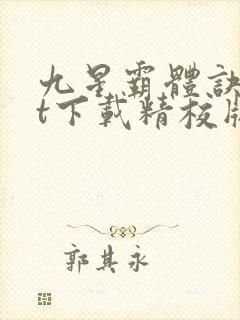 九星霸體訣
t下載精校版
郭其永